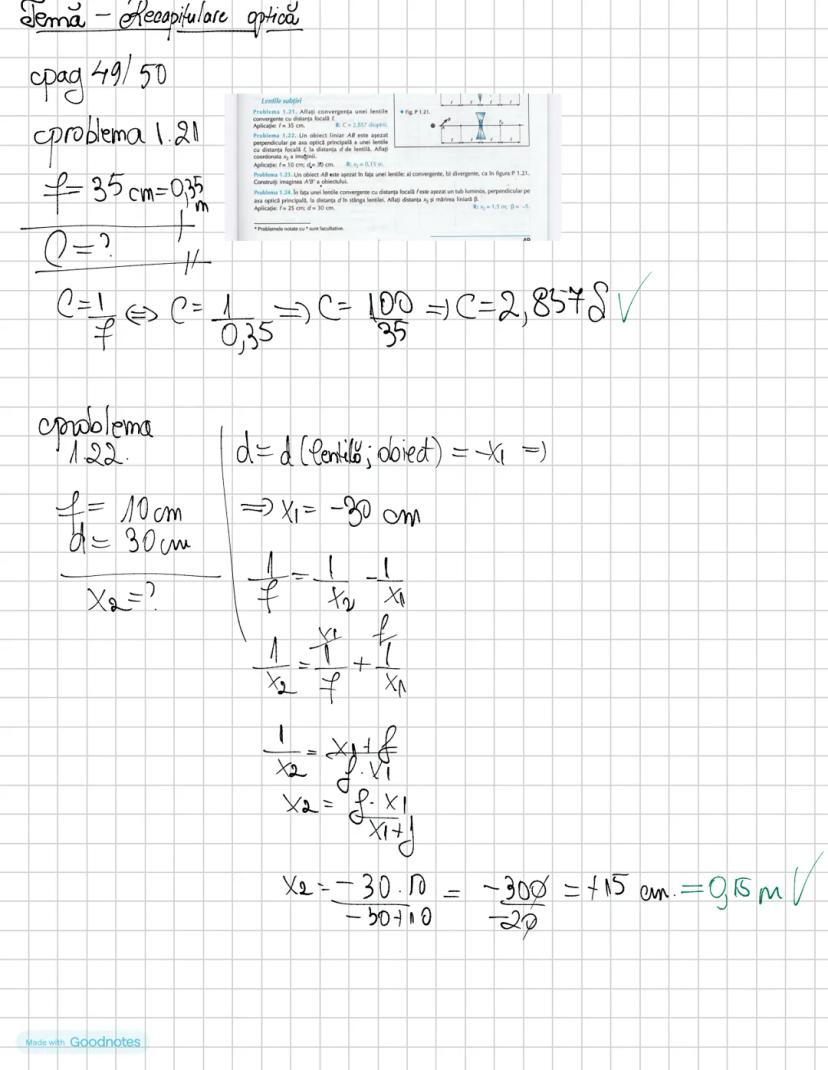 Temă – Recapitulare optică
cpag 49/50
Lentile subțiri
Problema 1.21. Aflați convergența unei lentile
convergente cu distanța focală f.
Aplicație: f = 35 cm. R: C = 2,857 dioptrii.
• Fig. P 1.21.
Problema 1.22. Un obiect liniar AB este așezat
perpendicular pe axa optică principală a unei lentile
cu distanța focală f, la distanța d de lentilă. Aflați
coordonata x₂ a imaginii.
Aplicație: f = 10 cm; d = 30 cm. R: x₂ = 0,15 m.
Problema 1.23. Un obiect AB este așezat în fața unei lentile: a) convergente, b) divergente, ca în figura P 1.21.
Construiți imaginea A'B' a obiectului.
Problema 1.24. În fața unei lentile convergente cu distanța focală f este așezat un tub luminos, perpendicular pe
axa optică principală, la distanța d în stânga lentilei. Aflați distanța x₂ și mărirea liniară β.
Aplicație: f = 25 cm; d = 30 cm. R: x₂ = 1,5 m; β = -5.
* Problemele notate cu * sunt facultative.
49
cproblema 1.21
f = 35 cm = 0,35 m
C = ?
C = 1/f ⇔ C = 1/0,35 ⇒ C = 100/35 ⇒ C = 2,857 δ ✓
cproblema
1.22.
f = 10 cm
d = 30 cm
x₂ = ?
d = d (lentilă; obiect) = -x₁ ⇒
⇒ x₁ = -30 cm
1/f = 1/x₂ - 1/x₁
1/x₂ = x₁) 1/f + f) 1/x₁
1/x₂ = x₁+f / f·x₁
x₂ = f·x₁ / x₁+f
x₂ = -30·10 / -30+10 = -300/-20 = +15 cm. = 0,15 m ✓
Made with Goodnotes